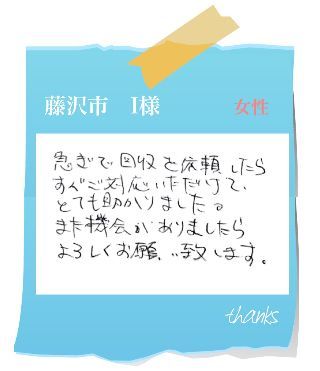 藤沢市 I様 女性
急ぎで回収を依頼したら
すぐご対応いただけて、
とても助かりました。
また機会がありましたら
よろしくお願い致します。
thanks